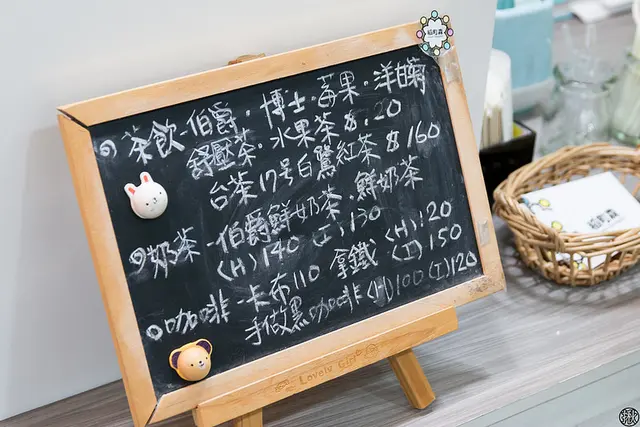 茶飲-伯爵·博士·莓果·洋甘菊
舒壓茶·水果茶 $:120
台茶17号白鷺紅茶 $160
奶茶-伯爵鮮奶茶·鮮奶茶
(H)140 (I)130 (H):120
咖啡-卡布110 拿鐵 (I)150
手做黑咖啡(H)100(I)120
Lovely Girl